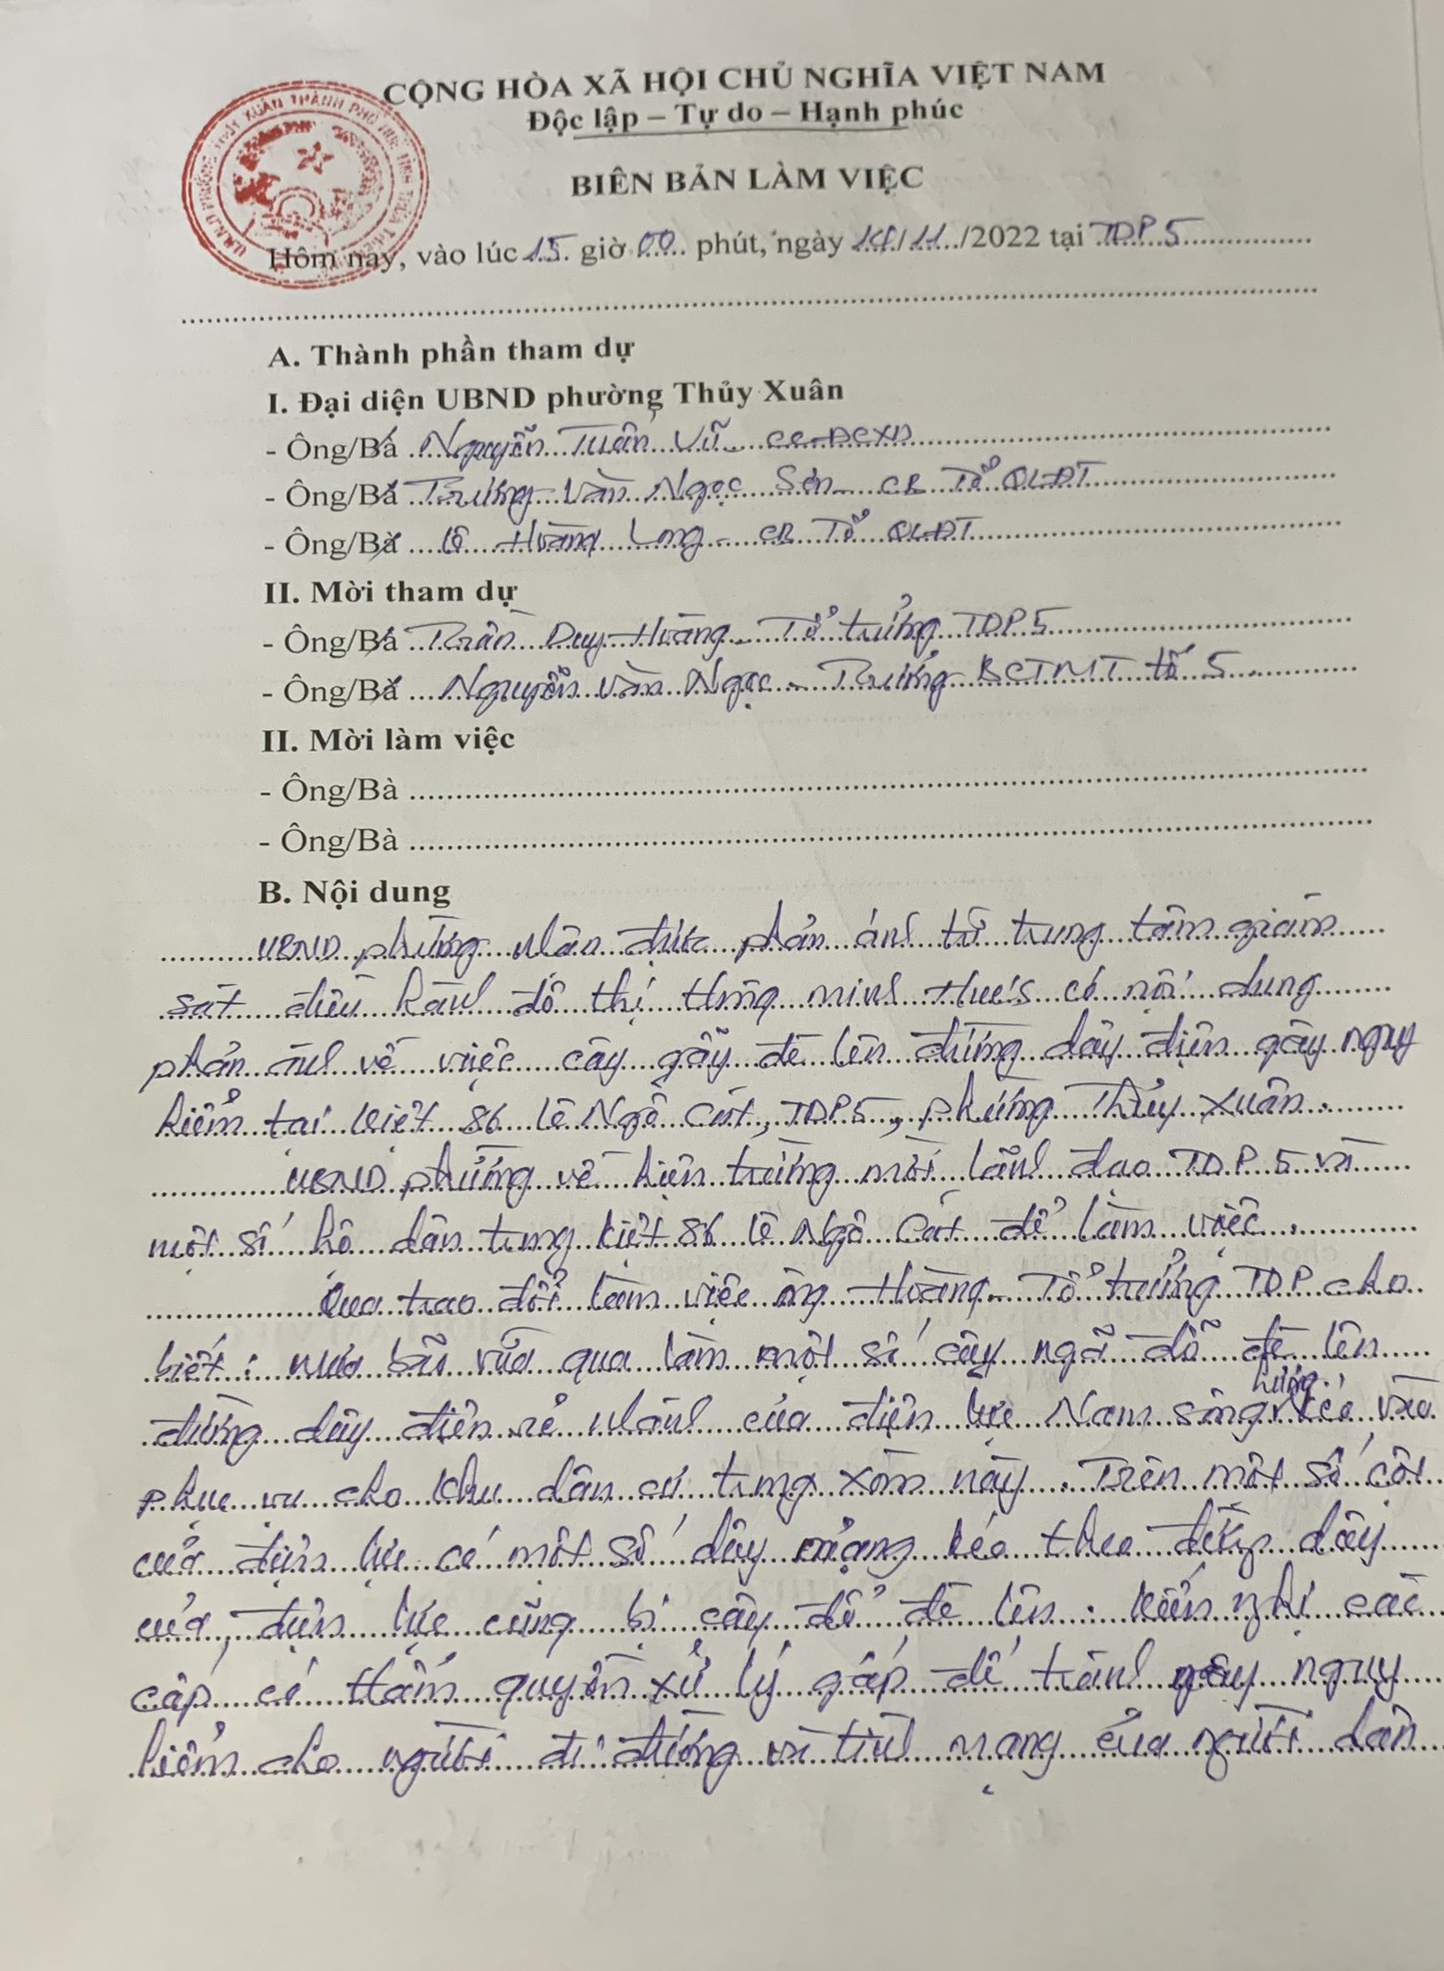 CỘNG HÒA XÃ HỘI CHỦ NGHĨA VIỆT NAM
Độc lập – Tự do – Hạnh phúc
BIÊN BẢN LÀM VIỆC
Hôm nay, vào lúc 15 giờ 00 phút, ngày 14/11/2022 tại TDP 5
A. Thành phần tham dự
I. Đại diện UBND phường Thủy Xuân
- Ông/Bà Nguyễn Tuấn Vũ - CC-ĐCXD
- Ông/Bà Trương Văn Ngọc Sơn - CB Tổ QLĐT
- Ông/Bà Lê Hoàng Long - CB Tổ QLĐT
II. Mời tham dự
- Ông/Bà Trần Duy Hoàng - Tổ trưởng TDP 5
- Ông/Bà Nguyễn Văn Ngọc - Trưởng BCTMT tổ 5
II. Mời làm việc
- Ông/Bà
- Ông/Bà
B. Nội dung
UBND phường nhận được phản ánh từ trung tâm giám
sát điều hành đô thị thông minh Hue's có nội dung
phản ánh về việc cây gãy đè lên đường dây điện gây nguy
hiểm tại kiệt 86 Lê Ngô Cát, TDP 5, phường Thủy Xuân.
UBND phường về hiện trường mời lãnh đạo TDP 5 và
một số hộ dân trong kiệt 86 Lê Ngô Cát để làm việc.
Qua trao đổi làm việc ông Hoàng - Tổ trưởng TDP cho
biết: mưa bão vừa qua làm một số cây ngã đổ đè lên
đường dây điện rẻ nhánh của điện lực Nam sông Hương kéo vào
phục vụ cho khu dân cư trong xóm này. Trên một số cột
của điện lực có một số dây mạng kéo theo đường dây
của điện lực cũng bị cây đổ đè lên. Kiến nghị các
cấp có thẩm quyền xử lý gấp để tránh gây nguy
hiểm cho người đi đường và tính mạng của người dân